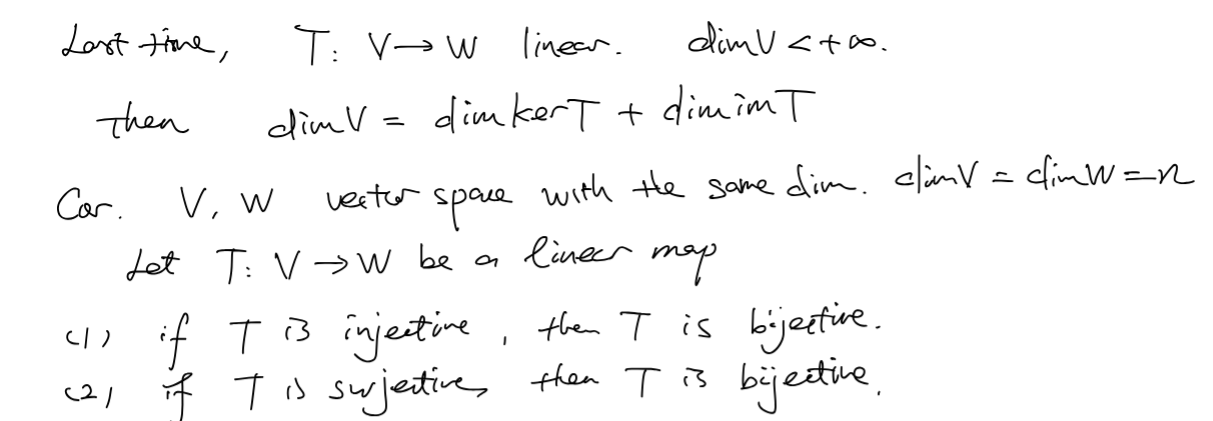 Last time, T: V→W linear. dimV < +∞.
Then dimV = dimkerT + dimimT
Cor. V, W vector space with the same dim. dimV = dimW = n
Let T: V→W be a linear map
(1) if T is injective, then T is bijective.
(2) if T is surjective, then T is bijective.